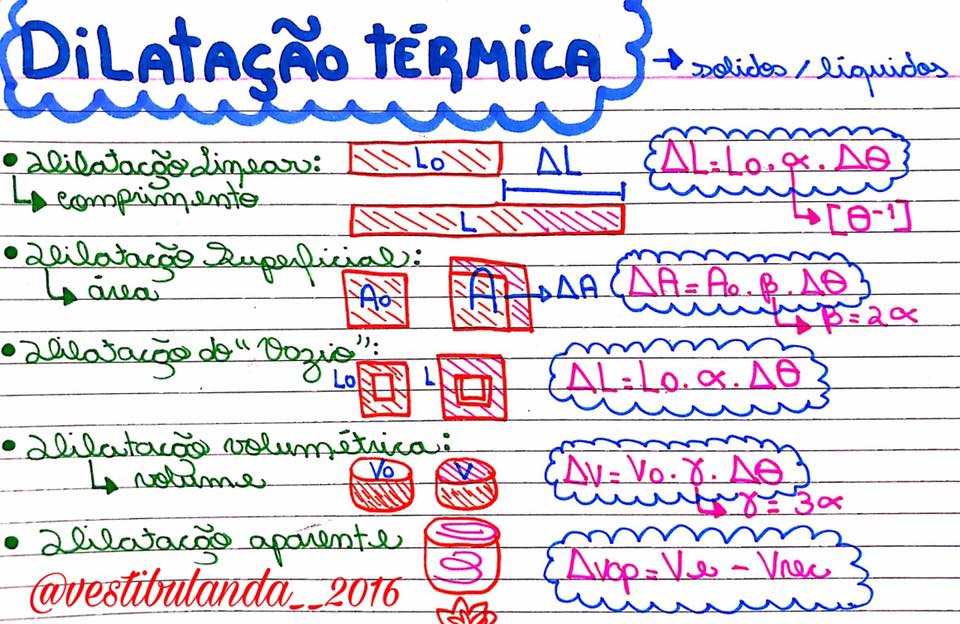 DiLatação TÉRMICA → solidos / líquidos
• Dilatação Linear: Lo ΔL ΔL = Lo . α . Δθ
↳ comprimento L ↳ [θ⁻¹]
• Dilatação Superficial:
↳ área Ao A → ΔA ΔA = Ao . β . Δθ
↳ β = 2α
• Dilatação do "Vazio":
Lo L ΔL = Lo . α . Δθ
• Dilatação volumétrica:
↳ volume Vo V ΔV = Vo . γ . Δθ
↳ γ = 3α
• Dilatação aparente
ΔVap = Ve - Vrec
@vestibulanda__2016